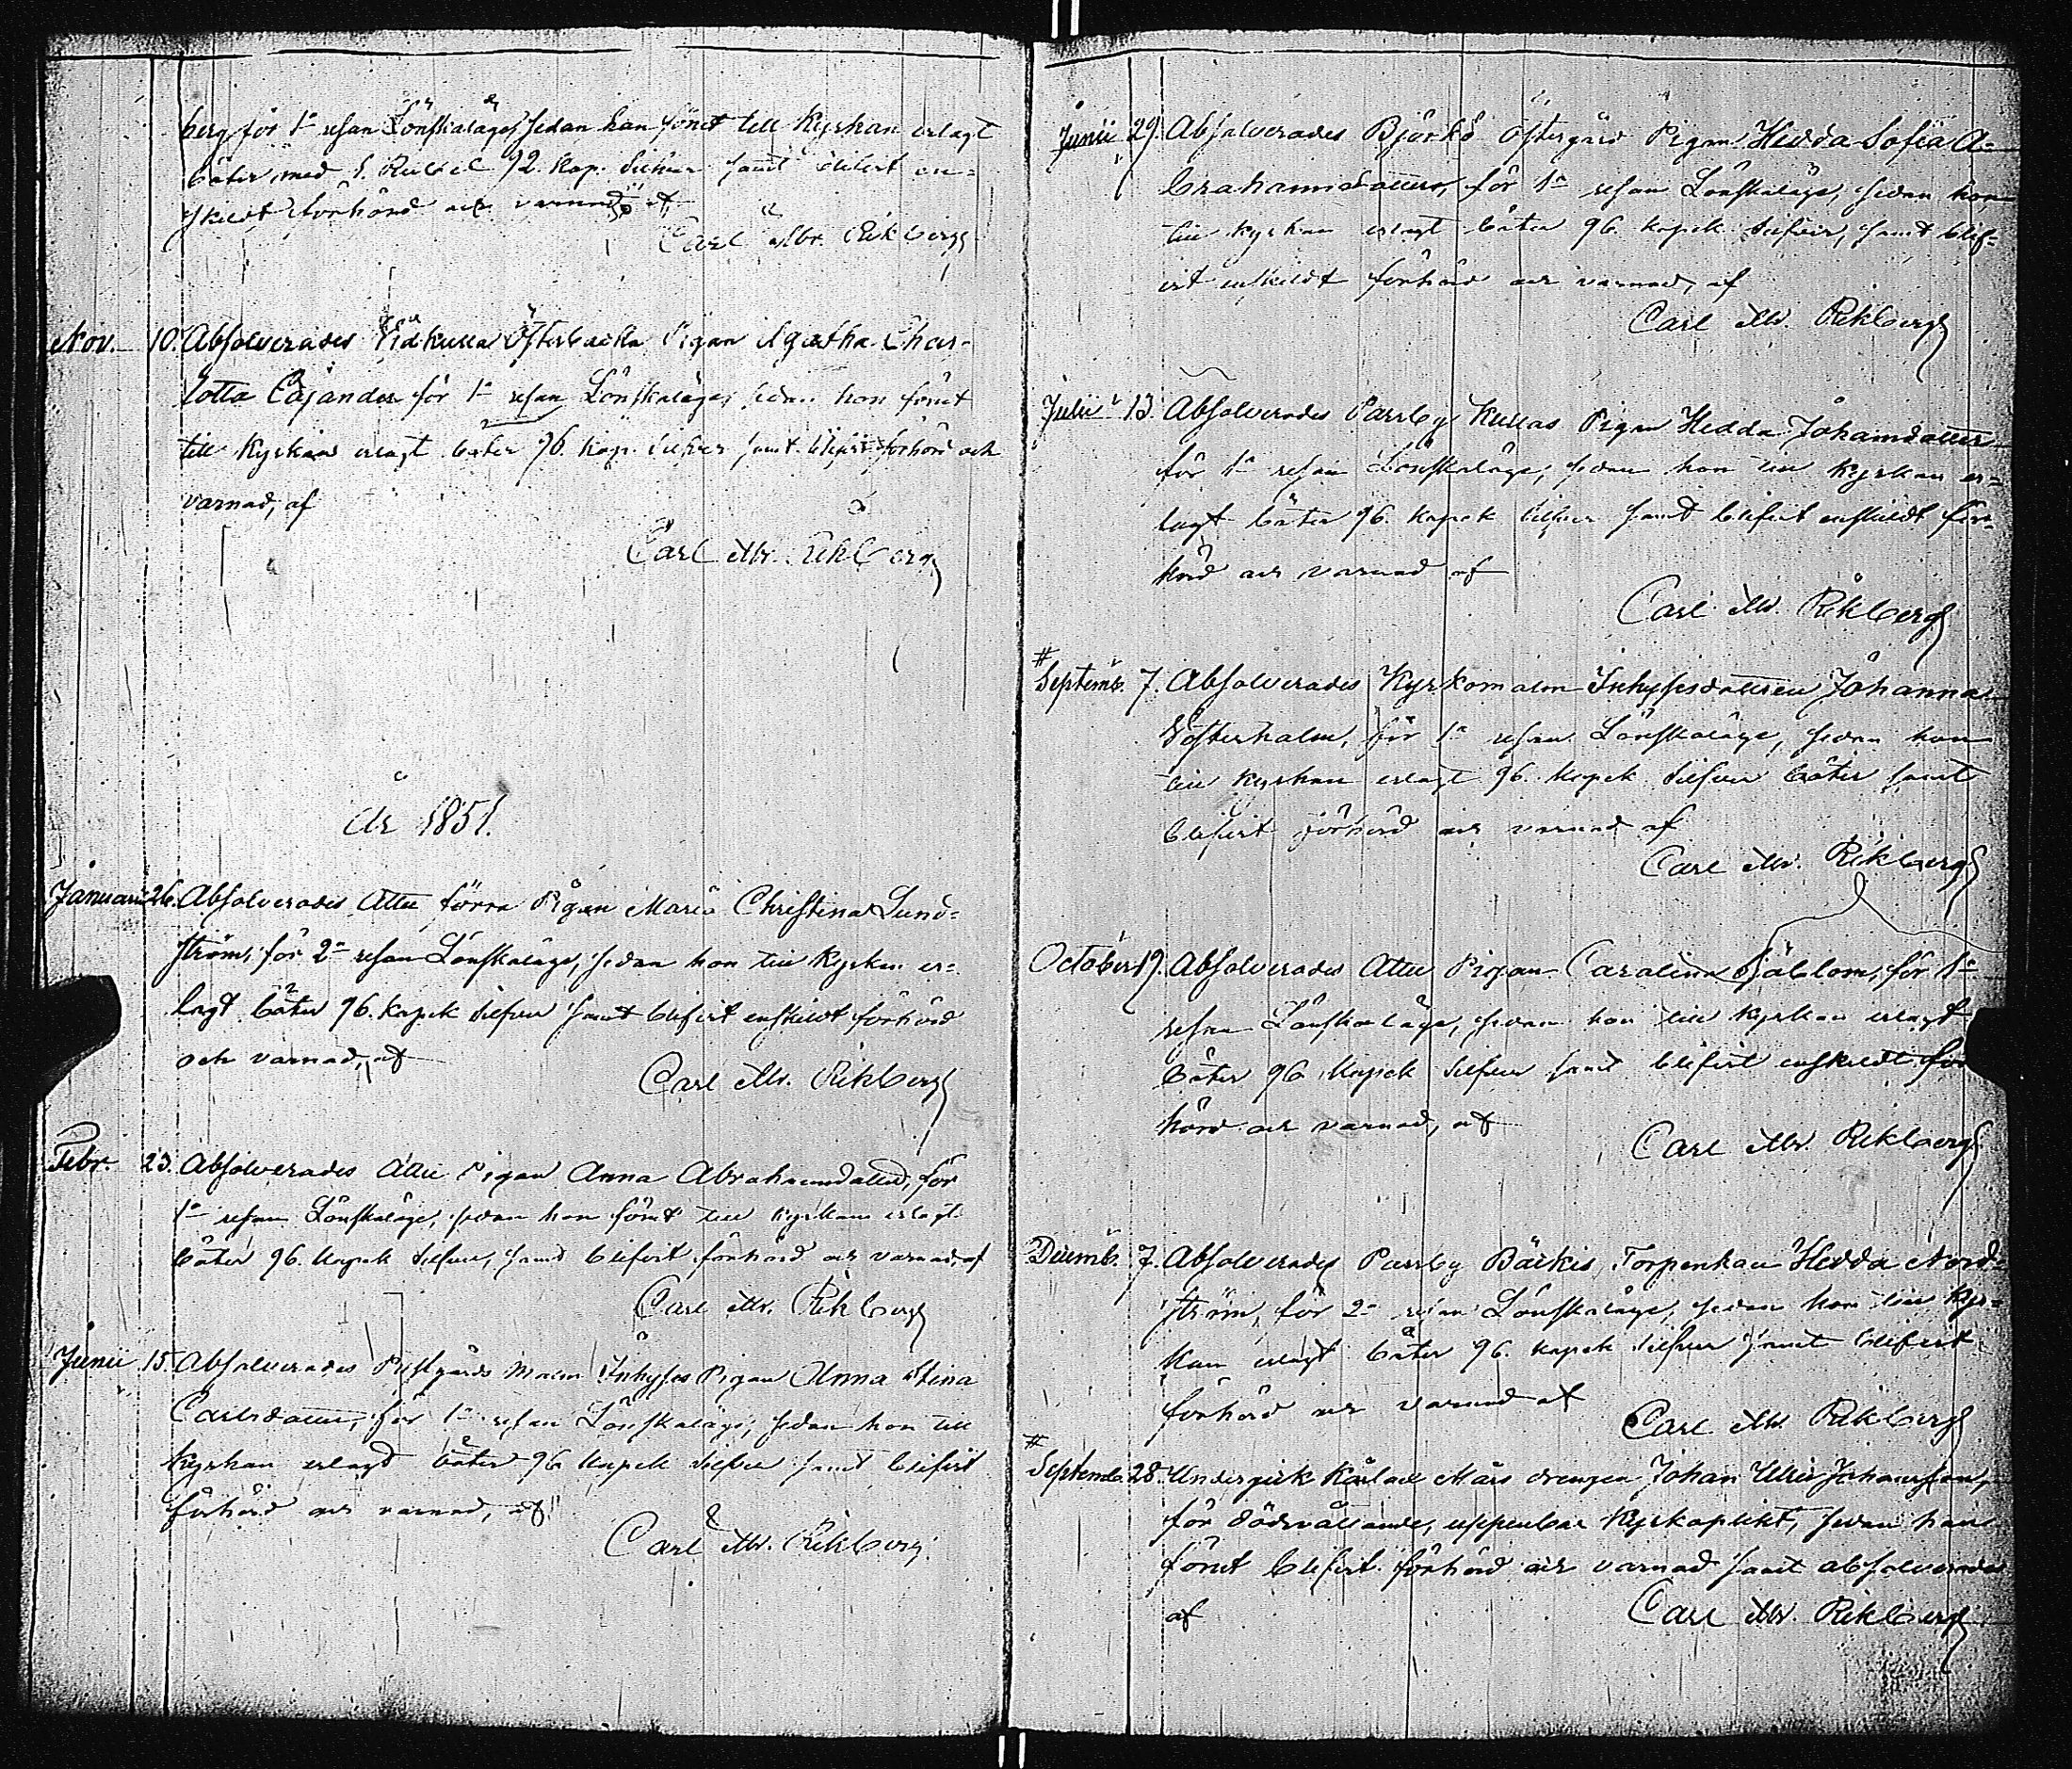 berg för 1a resan Lönskaläge, sedan han förut till Kyrkan erlagt
böter med 1. Rubel 92. Kop. Silfver samt blifvit en=
skildt förhörd och varnad, af
Carl Mr. Rikberg
Nov. 10. Absolverades Österbacka Pigan Agatha Char-
lotta Cajander för 1a resan Lönskaläge, sedan hon förut
till Kyrkan erlagt böter 96. Kop. Silfver samt blifvit förhörd och
varnad, af
Carl Mr. Rikberg
År 1851.
Januarii 26. Absolverades Attu förra Pigan Maria Christina Lund=
ström, för 2a resan Lönskaläge, sedan hon till Kyrkan er=
lagt böter 96. Kopek Silfver samt blifvit enskildt förhörd
och varnad, af
Carl Mr. Rikberg
Febr. 23. Absolverades Attu Pigan Anna Abrahamsdotter, för
1a resan Lönskaläge, sedan hon förut till Kyrkan erlagt
böter 96. Kopek Silfver, samt blifvit förhörd och varnad, af
Carl Mr. Rikberg
Junii 15. Absolverades Prestgårds Malm Inhyses Pigan Anna Stina
Carlsdotter, för 1a resan Lönskaläge, sedan hon till
Kyrkan erlagt böter 96 Kopek Silfver samt blifvit
förhörd och varnad, af
Carl Mr. Rikberg
Junii 29. Absolverades Björkö Östergård Pigan Hedda Sofia A=
brahamsdotter, för 1a resan Lönskaläge, sedan hon
till Kyrkan erlagt böter 96. Kopek Silfver, samt blif=
vit enskildt förhörd och varnad, af
Carl Mr. Rikberg
Julii 13. Absolverades Parrby Kullas Pigan Hedda Johansdotter
för 1a resan Lönskaläge, sedan hon till Kyrkan er=
lagt böter 96. Kopek Silfver samt blifvit enskildt för=
hörd och varnad af
Carl Mr. Rikberg
# Septemb. 7. Absolverades Kyrkomalm Inhysesdottren Johanna
Österholm, för 1a resan Lönskaläge, sedan hon
till Kyrkan erlagt 96. Kopek Silfver böter samt
blifvit förhörd och varnad af
Carl Mr. Rikberg
October 19. Absolverades Attu Pigan Carolina Sjöblom, för 1a
resan Lönskaläge, sedan hon till Kyrkan erlagt
böter 96 Kopek Silfver samt blifvit enskildt för
hörd och varnad, af
Carl Mr. Rikberg
Decemb. 7. Absolverades Parrby Bäckis Torpenkan Hedda Nord=
ström, för 2a resan Lönskaläge, sedan hon till Kyr=
kan erlagt böter 96. Kopek Silfver samt blifvit
förhörd och varnad af
Carl Mr. Rikberg
# Septemb. 28. Undergick Mårs drengen Johan Ulric Johansson,
för dödsvållande, uppenbar Kyrkoplikt, sedan han
förut blifvit förhörd och varnad samt absolverades
af Carl Mr. Rikberg